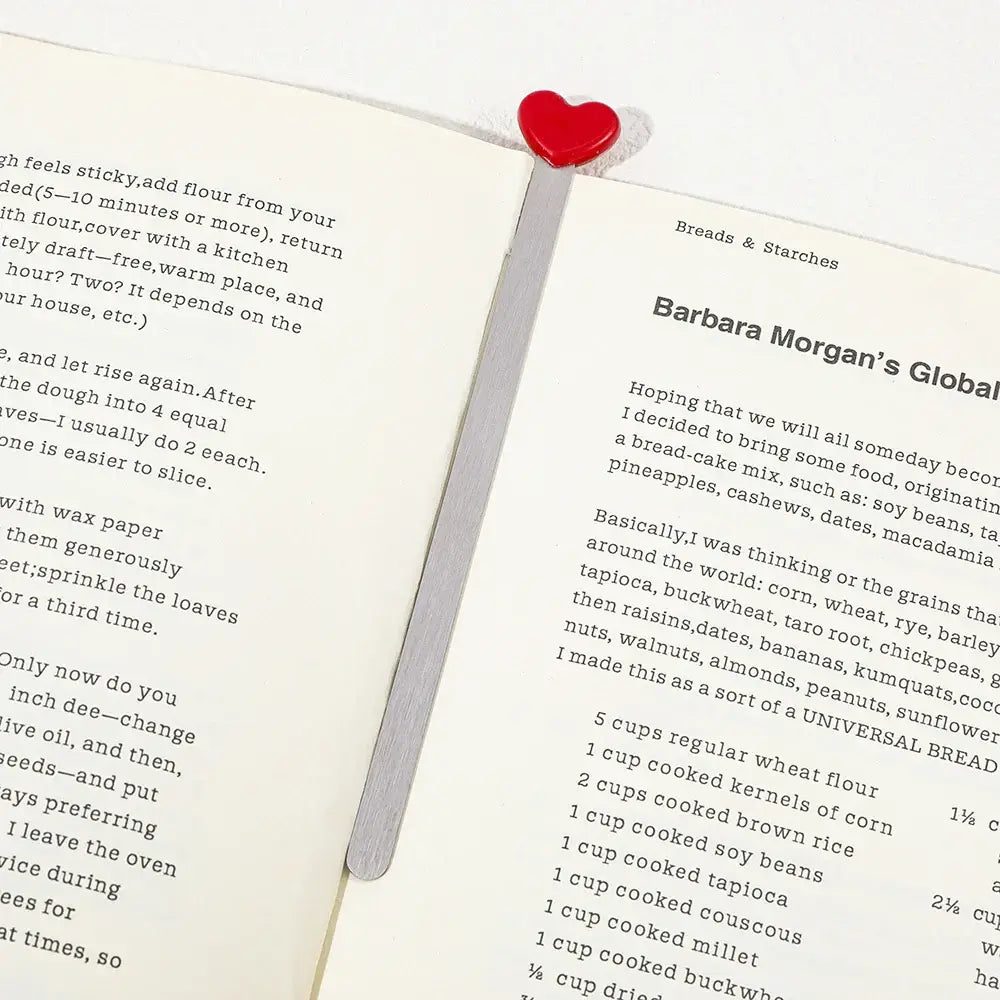 gh feels sticky,add flour from your
ded(5—10 minutes or more), return
ith flour,cover with a kitchen
tely draft—free,warm place, and
hour? Two? It depends on the
our house, etc.)
e, and let rise again.After
the dough into 4 equal
aves—I usually do 2 eeach.
one is easier to slice.
with wax paper
them generously
eet;sprinkle the loaves
for a third time.
Only now do you
inch dee—change
live oil, and then,
seeds—and put
ays preferring
I leave the oven
wice during
ees for
at times, so
Breads & Starches
Barbara Morgan's Global
Hoping that we will ail someday becom
I decided to bring some food, originatin
a bread-cake mix, such as: soy beans, ta
pineapples, cashews, dates, macadamia
Basically,I was thinking or the grains that
around the world: corn, wheat, rye, barley
tapioca, buckwheat, taro root, chickpeas, g
then raisins,dates, bananas, kumquats,coco
nuts, walnuts, almonds, peanuts, sunflower
I made this as a sort of a UNIVERSAL BREAD
5 cups regular wheat flour
1 cup cooked kernels of corn
2 cups cooked brown rice
1 cup cooked soy beans
1 cup cooked tapioca
1 cup cooked couscous
1 cup cooked millet
1 cup cooked buckwhe
½ cup dried
1½ c
2½ cup
w
ha